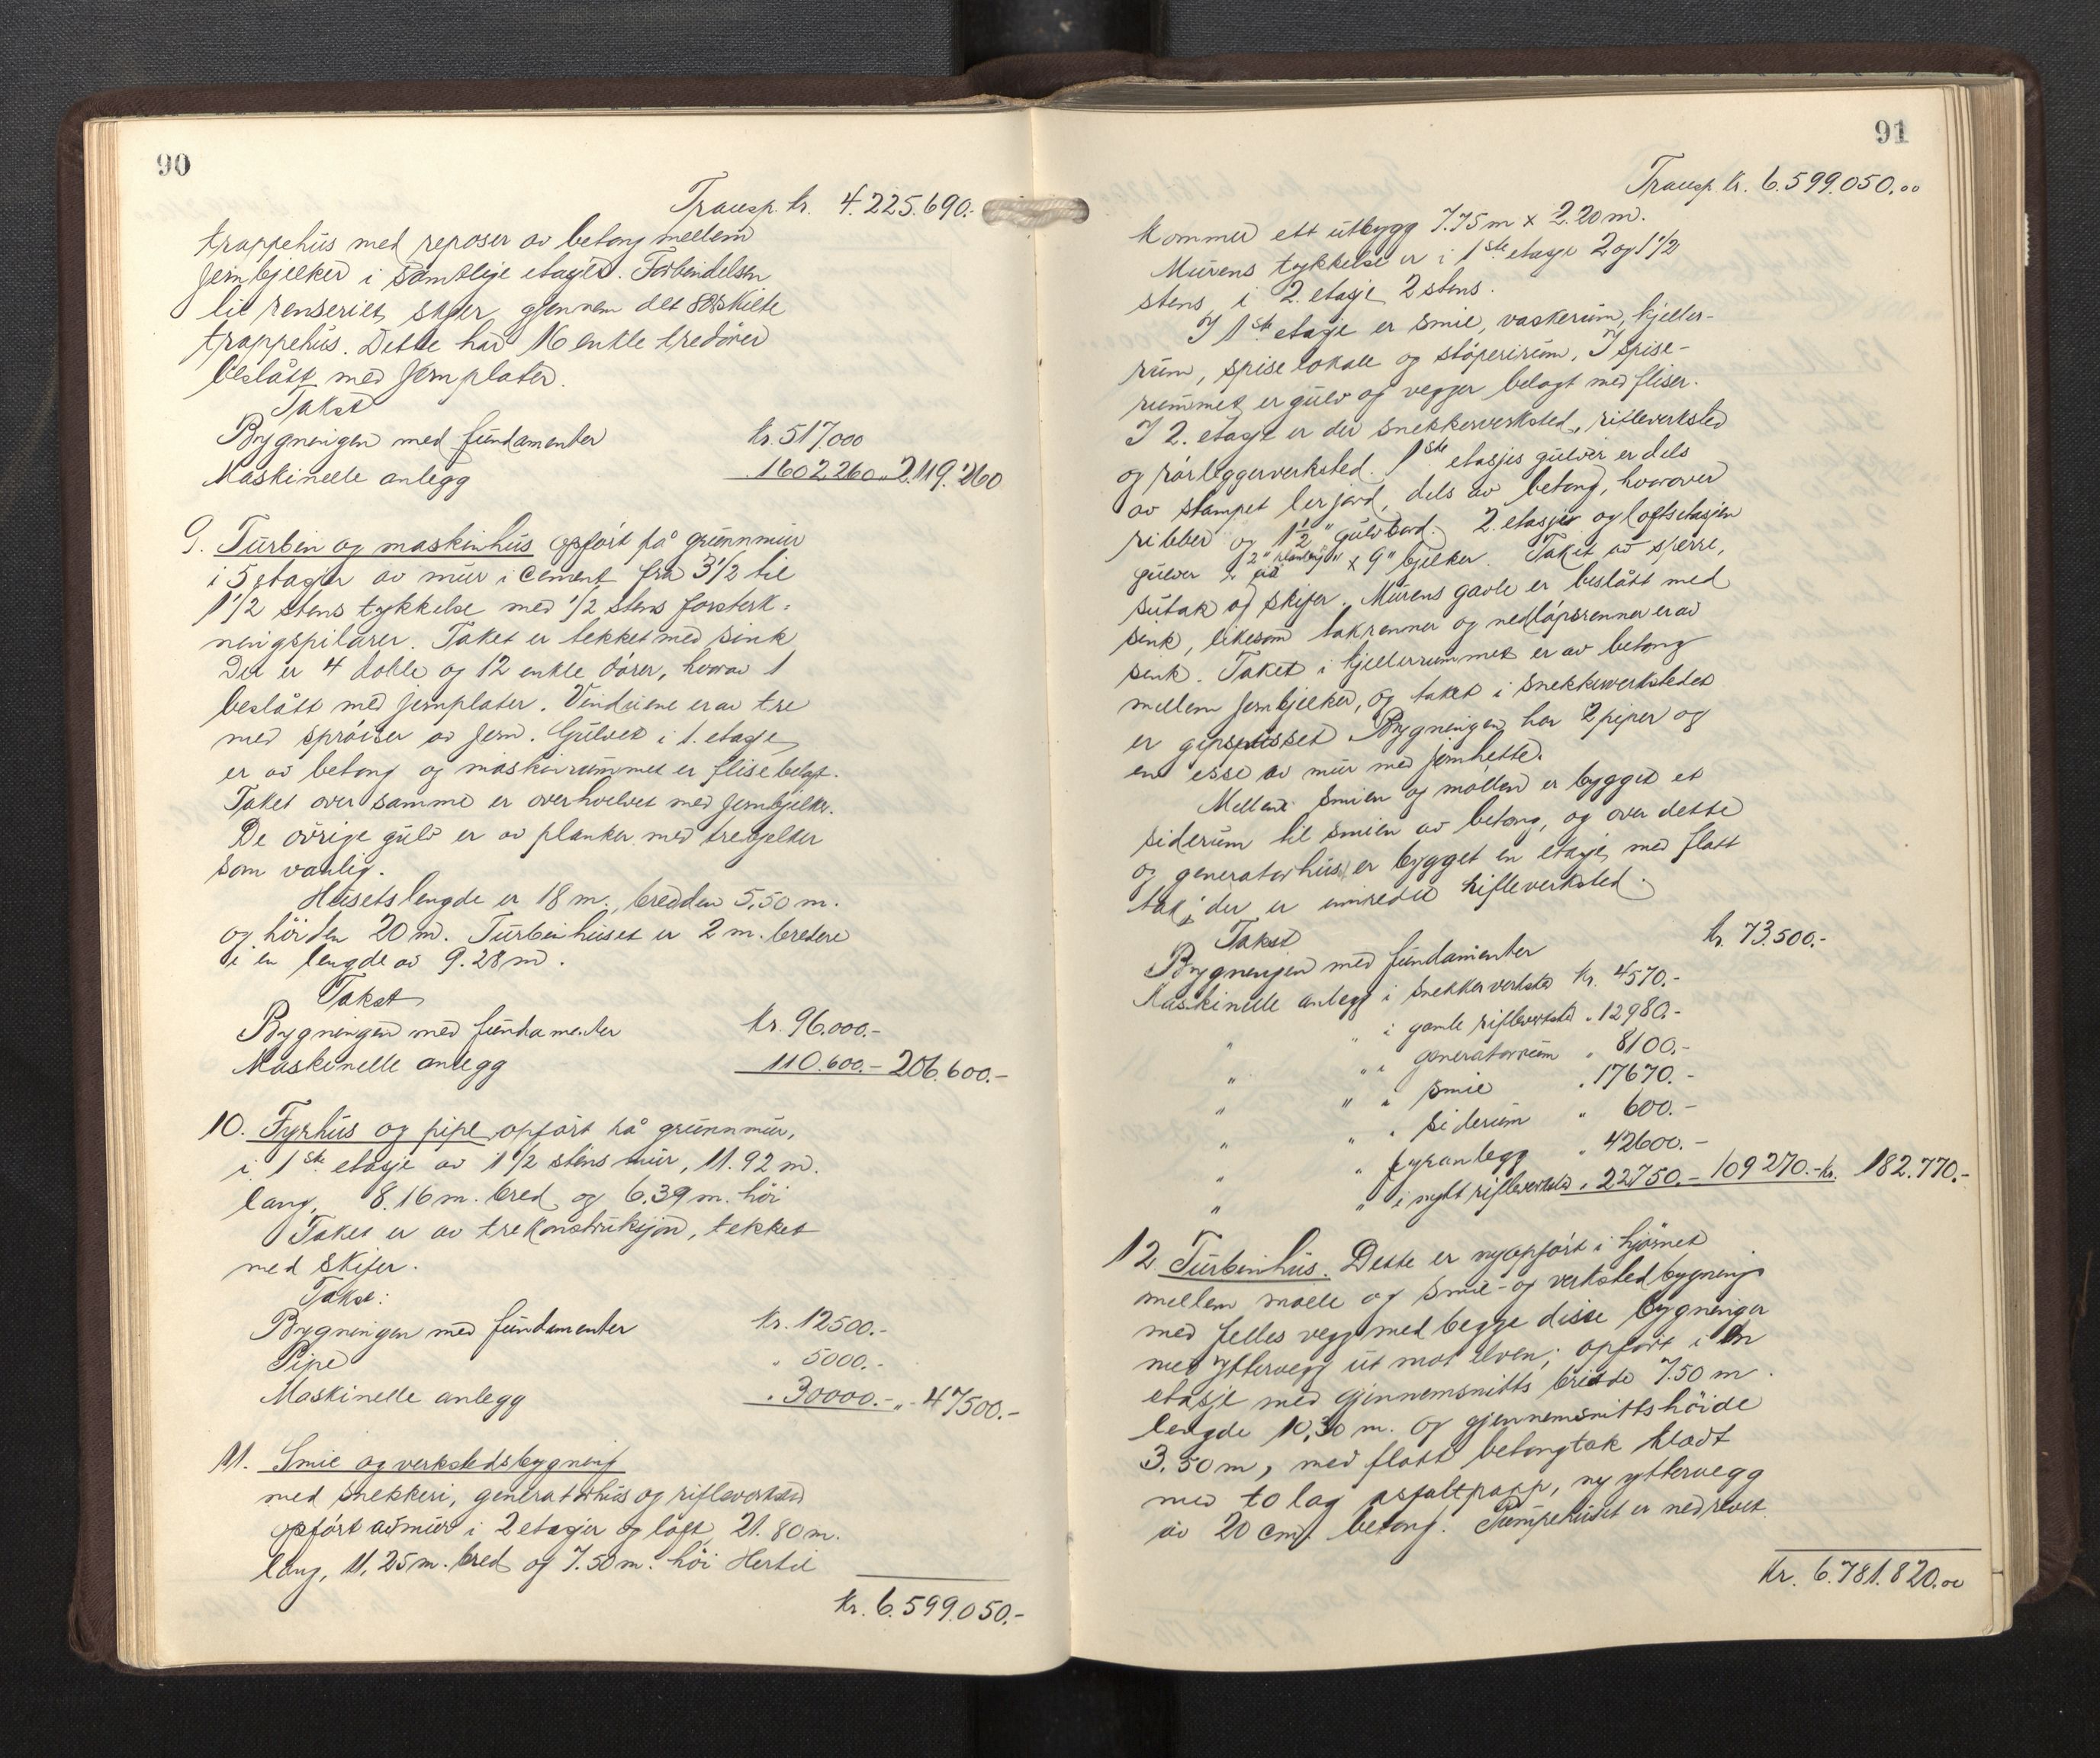 90
Transp. kr. 4.225.690.-
trappehus med reposer av betong mellem
jernbjelker i samtlige etager. Forbindelsen
til renseriet skjer gjennem det særskilte
trappehus. Dette har 16 enkle tredører
beslått med jernplater.
Takst
Bygningen med fundamenter kr. 517000
Maskinelle anlegg " 1602260 " 2.119.260
9. Turbin og maskinhus opført på grunnmur
i 5 etager av mur i cement fra 3 1/2 til
1 1/2 stens tykkelse med 1/2 stens forsterk-
ningspilarer. Taket er tekket med sink
Der er 4 doble og 12 enkle dører, hvorav 1
beslått med jernplater. Vinduene er av tre
med sprøiser av jern. Gulvet i 1. etage
er av betong og maskinrummet er flisebelagt.
Taket over samme er overhvelvet med jernbjelker.
De øvrige gulv er av planker med trebjelker
som vanlig.
Husets lengde er 18 m., bredden 5,50 m.
og høiden 20 m. Turbinhuset er 2 m. bredere
i en lengde av 9.28 m.
Takst
Bygningen med fundamenter kr. 96.000.-
Maskinelle anlegg 110.600.- 206.600.-
10. Fyrhus og pipe, opført på grunnmur,
i 1ste etasje av 1 1/2 stens mur, 11.92 m.
lang, 8.16 m. bred og 6.39 m. høi
Taket er av trekonstruksjon, tekket
med skifer.
Takst:
Bygningen med fundamenter kr. 12500.-
Pipe " 5000.-
Maskinelle anlegg " 30000.- " 47500.-
11. Smie og verkstedsbygning
med snekkeri, generatorhus og rifleverksted
opført av mur i 2 etager og loft, 21.80 m.
lang, 11,25 m. bred og 7.50 m. høi Hertil
kr. 6.599.050.-
91
Transp. kr. 6.599.050.00
kommer ett utbygg 7.75 m x 2.20 m.
Murens tykkelse er i 1ste etage 2 og 1 1/2
stens, i 2. etasje 2 stens.
I 1ste etage er smie, vaskerum, kjeller-
rum, spiselokale og støperirum. I spise-
rummet er gulv og vegger belagt med fliser.
I 2. etage er der snekkerverksted, rifleverksted
og rørleggerverksted. 1ste etasjes gulver er dels
av stampet lerjord, dels av betong, hvorover
ribber og 1 1/2" gulvbord. 2. etasjes og loftsetasjen
gulver er 2" planker på x 9" bjelker. Taket av sperre,
sutak og skifer. Murens gavle er beslått med
sink, likesom takrenner og nedløpsrenner er av
sink. Taket i kjellerrummet er av betong
mellem jernbjelker, og taket i snekkerverkstedet
er gipspusset. Bygningen har 2 piper og
en esse av mur med jernhette.
Mellem smien og møllen er bygget et
siderum til smien av betong, og over dette
og generatorhus er bygget en etasje med flatt
tak; der er innredet rifleverksted.
Takst
Bygningen med fundamenter kr. 73.500.-
Maskinelle anlegg i snekkerverksted kr. 4570.-
" " i gamle rifleverksted " 12980.-
" " " generatorrum " 8100.-
" " " smie " 17670.-
" " " siderum " 600.-
" " fyranlegg " 42600.-
" " i nytt rifleverksted " 22750.- 109270.- kr. 182.770.-
12. Turbinhus. Dette er nyopført i hjørnet
mellem mølle og smie- og verkstedbygning
med felles vegg med begge disse bygninger
med yttervegg ut mot elven; opført i en
etasje med gjennemsnitts bredde 7.50 m.
lengde 10,30 m. og gjennemsnittshøide
3.50 m, med flatt betongtak klædt
med to lag asfaltpapp, ny yttervegg
av 20 cm. betong. Pumpehuset er nedrevet.
Kr. 6.781.820.00